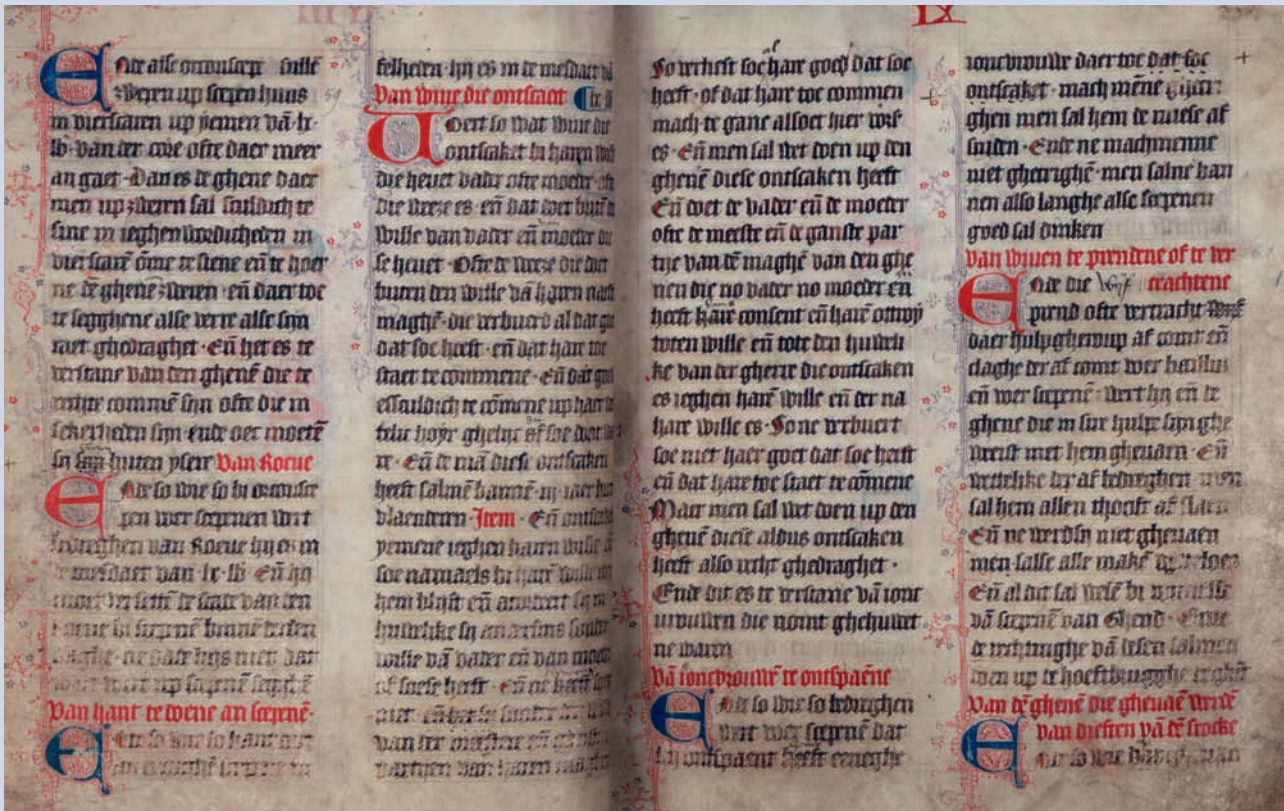 IX
Ende alse orconscepe sulle
zweren up scepen huus
in vierscaren up yemen vā lx
lb · van der core ofte daer meer
an gaet · Dan es de ghene daer
men up zweren sal sculdich te
sine in ieghenwordicheden in
vierscarē ōme te siene eñ te hoer
ne dē ghenē zweren · eñ daer toe
te segghene alse verre alse sijn
raet ghedraghet · Eñ het es te
verstane van den ghenē die te
commē sijn ofte die in
sekerheden sijn · ende oec moetē
sij sijn buten ysere Van Roeue
Ende so wie so bi orconsce
pen voer scepenen wert
bedreghen van Roeue hij es in
de mesdaet van lx · lb Eñ hij
moet de scade van den
Roeue bi scepenē binnē
daghe · ne dade hijs niet dat
up scepenē
Van hant te doene an scepenē ·
Ende so wie so hant
an scepenē
felheden · hij es in de mesdaet vā
Van wiue die ontscaect
Voert so wat wiue die
ontscaket bi haren wille
die heuet vader ofte moeder · ofte
die weeze es · eñ dat doet buten dē
wille van vader eñ moeder die
se heuet · Ofte de weeze die doet
buten den wille vā haren naesten
maghē · die verbuerd al dat goet
dat soe heeft · eñ dat hare toe
staet te commene · Eñ dat goet
es sculdich te cōmene up haer
hoyr ghelijc of soe doot wa
re · Eñ de mā diese ontscaken
heeft salmē bannē · iij · iaer huut
vlaenderen · Item · Eñ ontscaect
yemene ieghen haren wille eñ
soe namaels bi harē wille met
hem blijft eñ
huwelike sonder
wille vā vader eñ van moeder
of soese heeft · Eñ
niet · eñ sonder
van der meester eñ
partyen van haren maghen
So verliest soe hare goed dat soe
heeft · of dat hare toe commen
mach · te gane alsoet hier vors
es · Eñ men sal wet doen up den
ghenē diese ontscaken heeft
Eñ doet de vader eñ de moeder
ofte de meeste eñ de ganste par
tye van dē maghē van den ghe
nen die no vader no moeder en
heeft harē consent eñ harē
toten wille eñ tote den huweli
ke van der ghere die ontscaken
es ieghen harē wille eñ der na
hare wille es · So ne verbuert
soe niet haer goet dat soe heeft
eñ dat hare toe staet te cōmene
Maer men sal wet doen up den
ghenē diese aldus ontscaken
heeft also recht ghedraghet ·
Ende dit es te verstane vā ionc
vrouwen die noint ghehuwet
ne waren
Vā ioncvrouwē te ontspaēne
Ende so wie so bedreghen
wert voer scepenē dat
hij ontspaent heeft eneghe
ioncvrouwe daer toe dat soe
ontscaket · mach menē ghecri
ghen men sal hem de nuese af
sniden · Ende ne machmenne
niet ghecrighē · men salne ban
nen also langhe alse scepenen
goed sal dinken
Van wiuen te prendene of te ver
crachtene
Ende die wijf
prend ofte vercracht
daer hulpgheroup af comt eñ
claghe der af comt voer bailliu
eñ voer scepenē · wert hij eñ de
ghene die in sire hulpe sijn ghe
weest met hem gheuaen · Eñ
wettelike der af bedreghen men
sal hem allen thooft af slaen
Eñ ne werdsij niet gheuaen
men salse alle makē
Eñ al dit sal wesē bi
vā scepenē van Ghend · Ende
de rechtinghe vā desen salmen
doen up te hoeftbrugghe
Van dē ghenē die gheuaē werdē
van dieften vā dē stocke
Ende so wie